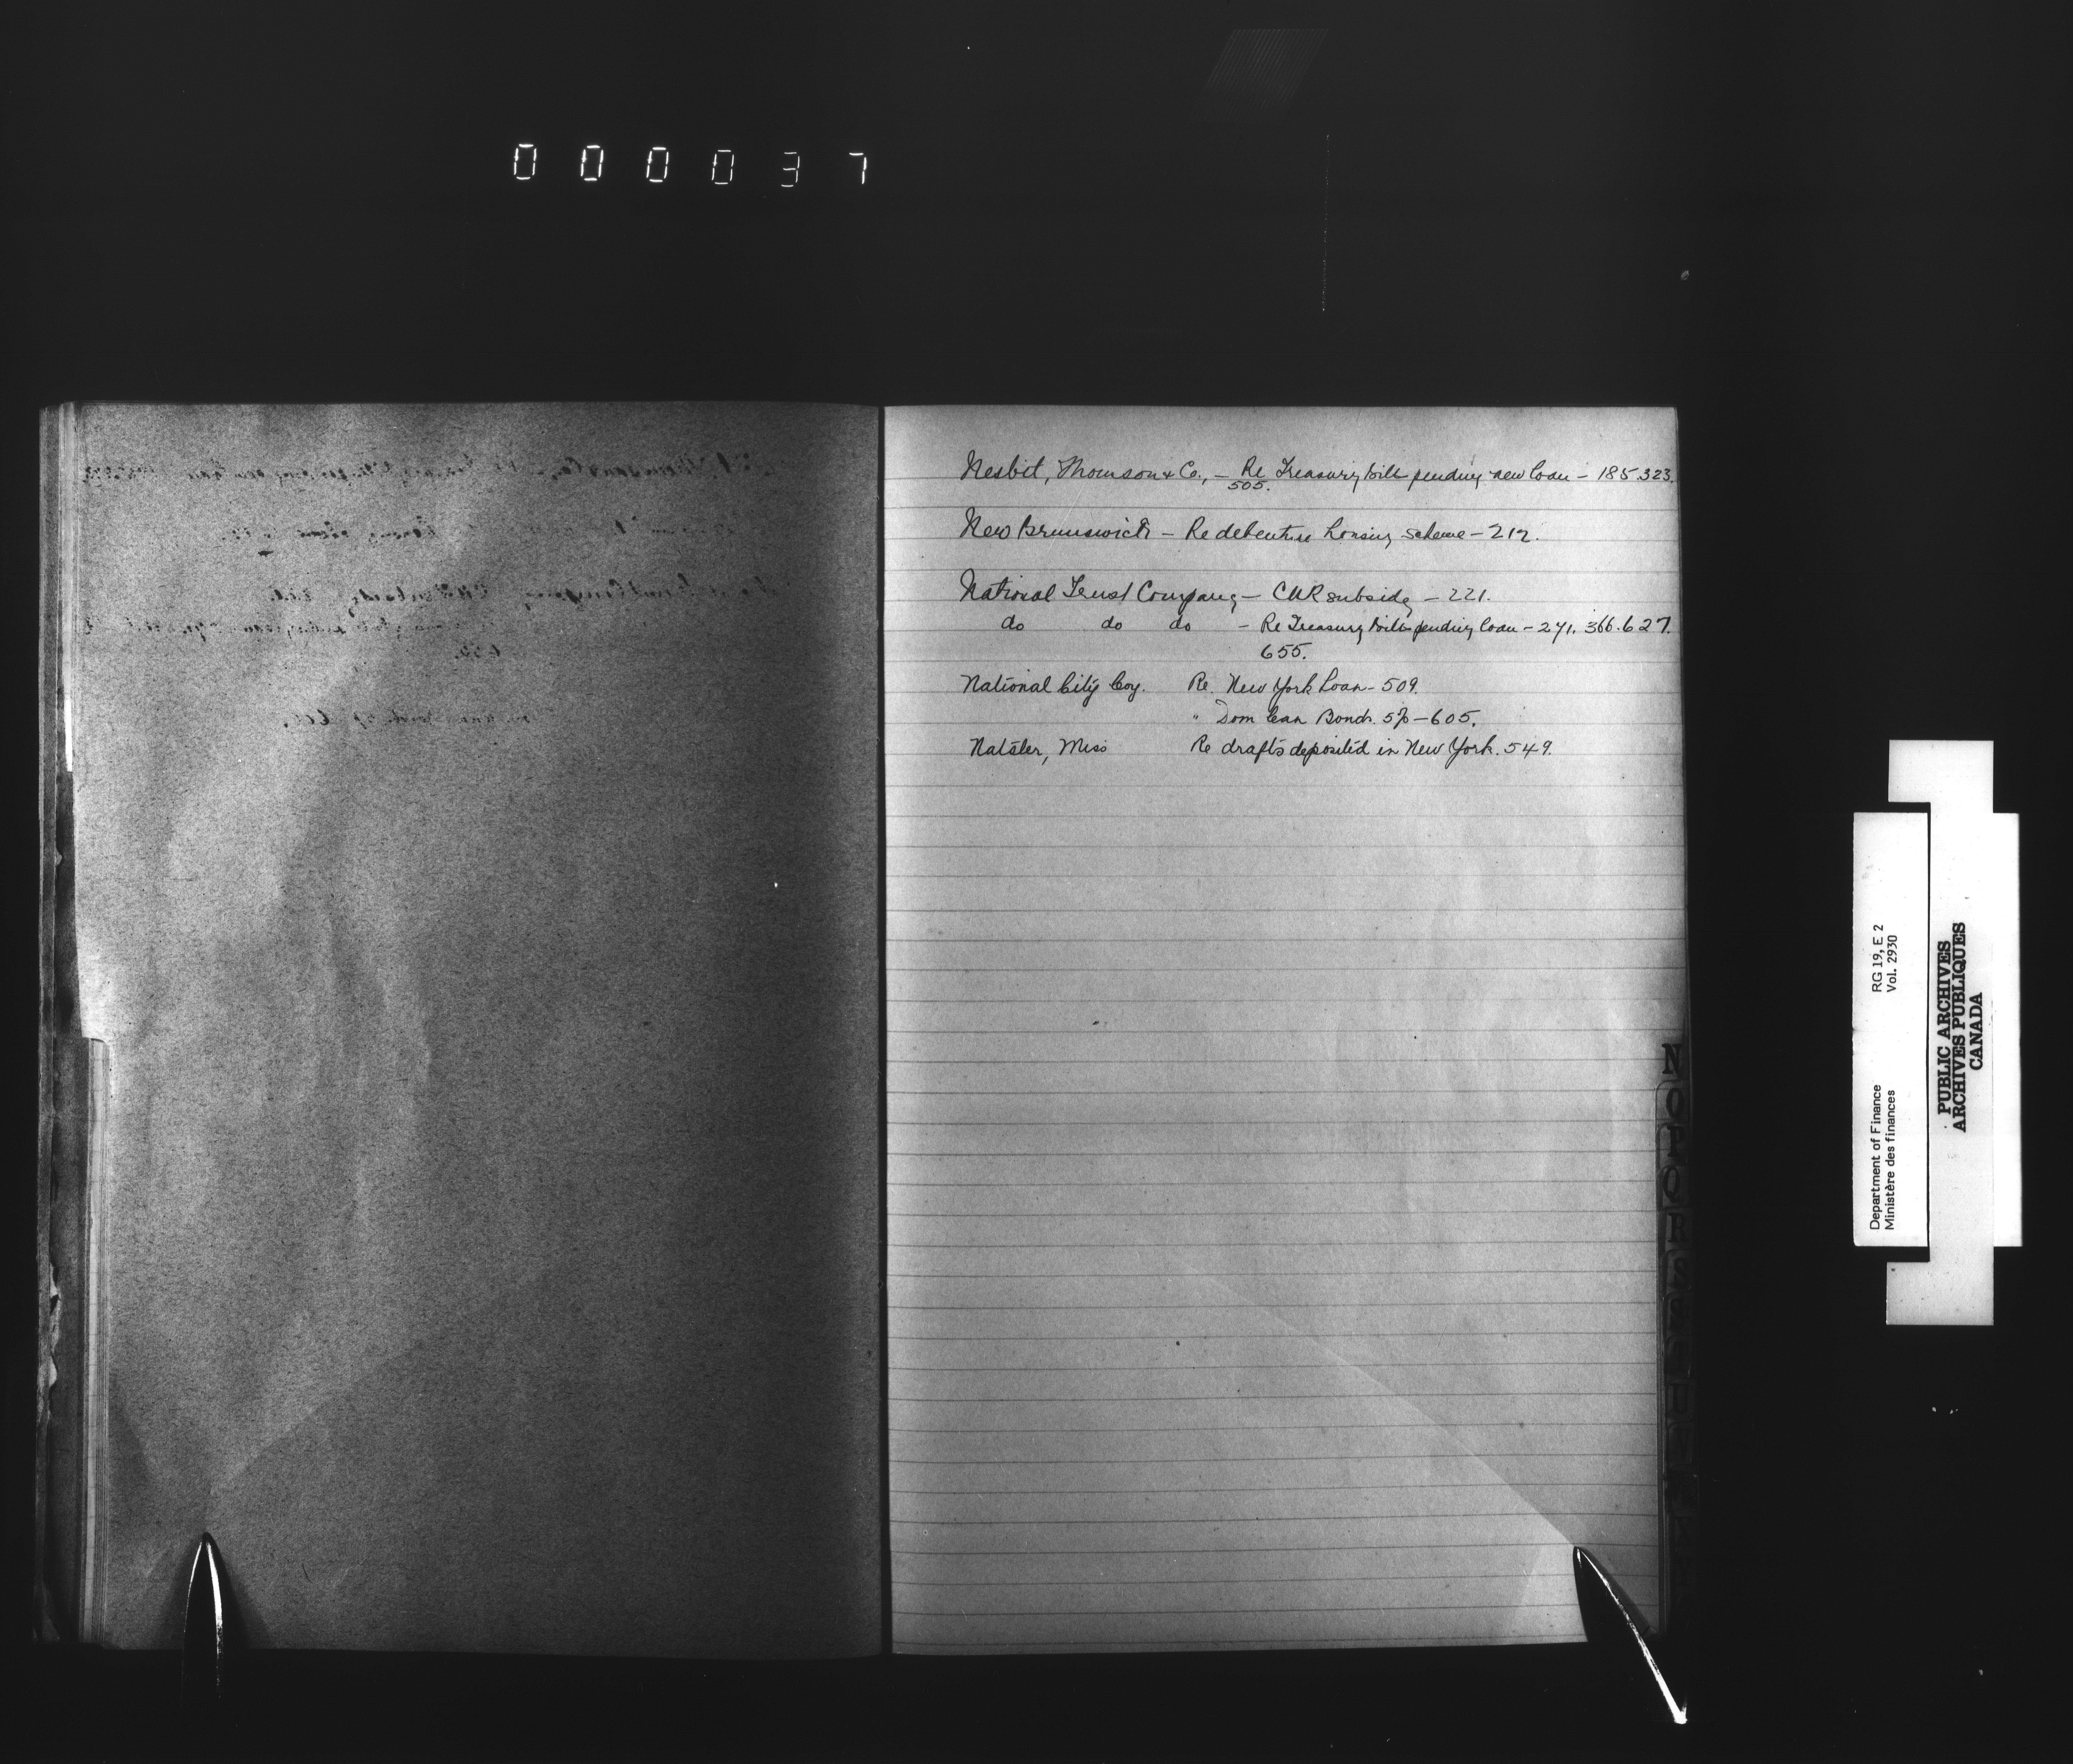 000037
Nesbit, Thomson & Co., — Re Treasury bills pending new loan — 185.323.
505.
New Brunswick — Re debenture housing scheme — 212.
National Trust Company — CNR subsidy — 221.
do do do — Re Treasury bills pending loan — 271. 366. 627.
655.
National City Coy. Re. New York Loan — 509.
" Dom Can Bonds. 5% — 605.
Natsler, Miss Re drafts deposited in New York. 549.
N
O
P
Q
R
S
Department of Finance RG 19, E 2
Ministère des finances Vol. 2930
PUBLIC ARCHIVES
ARCHIVES PUBLIQUES
CANADA